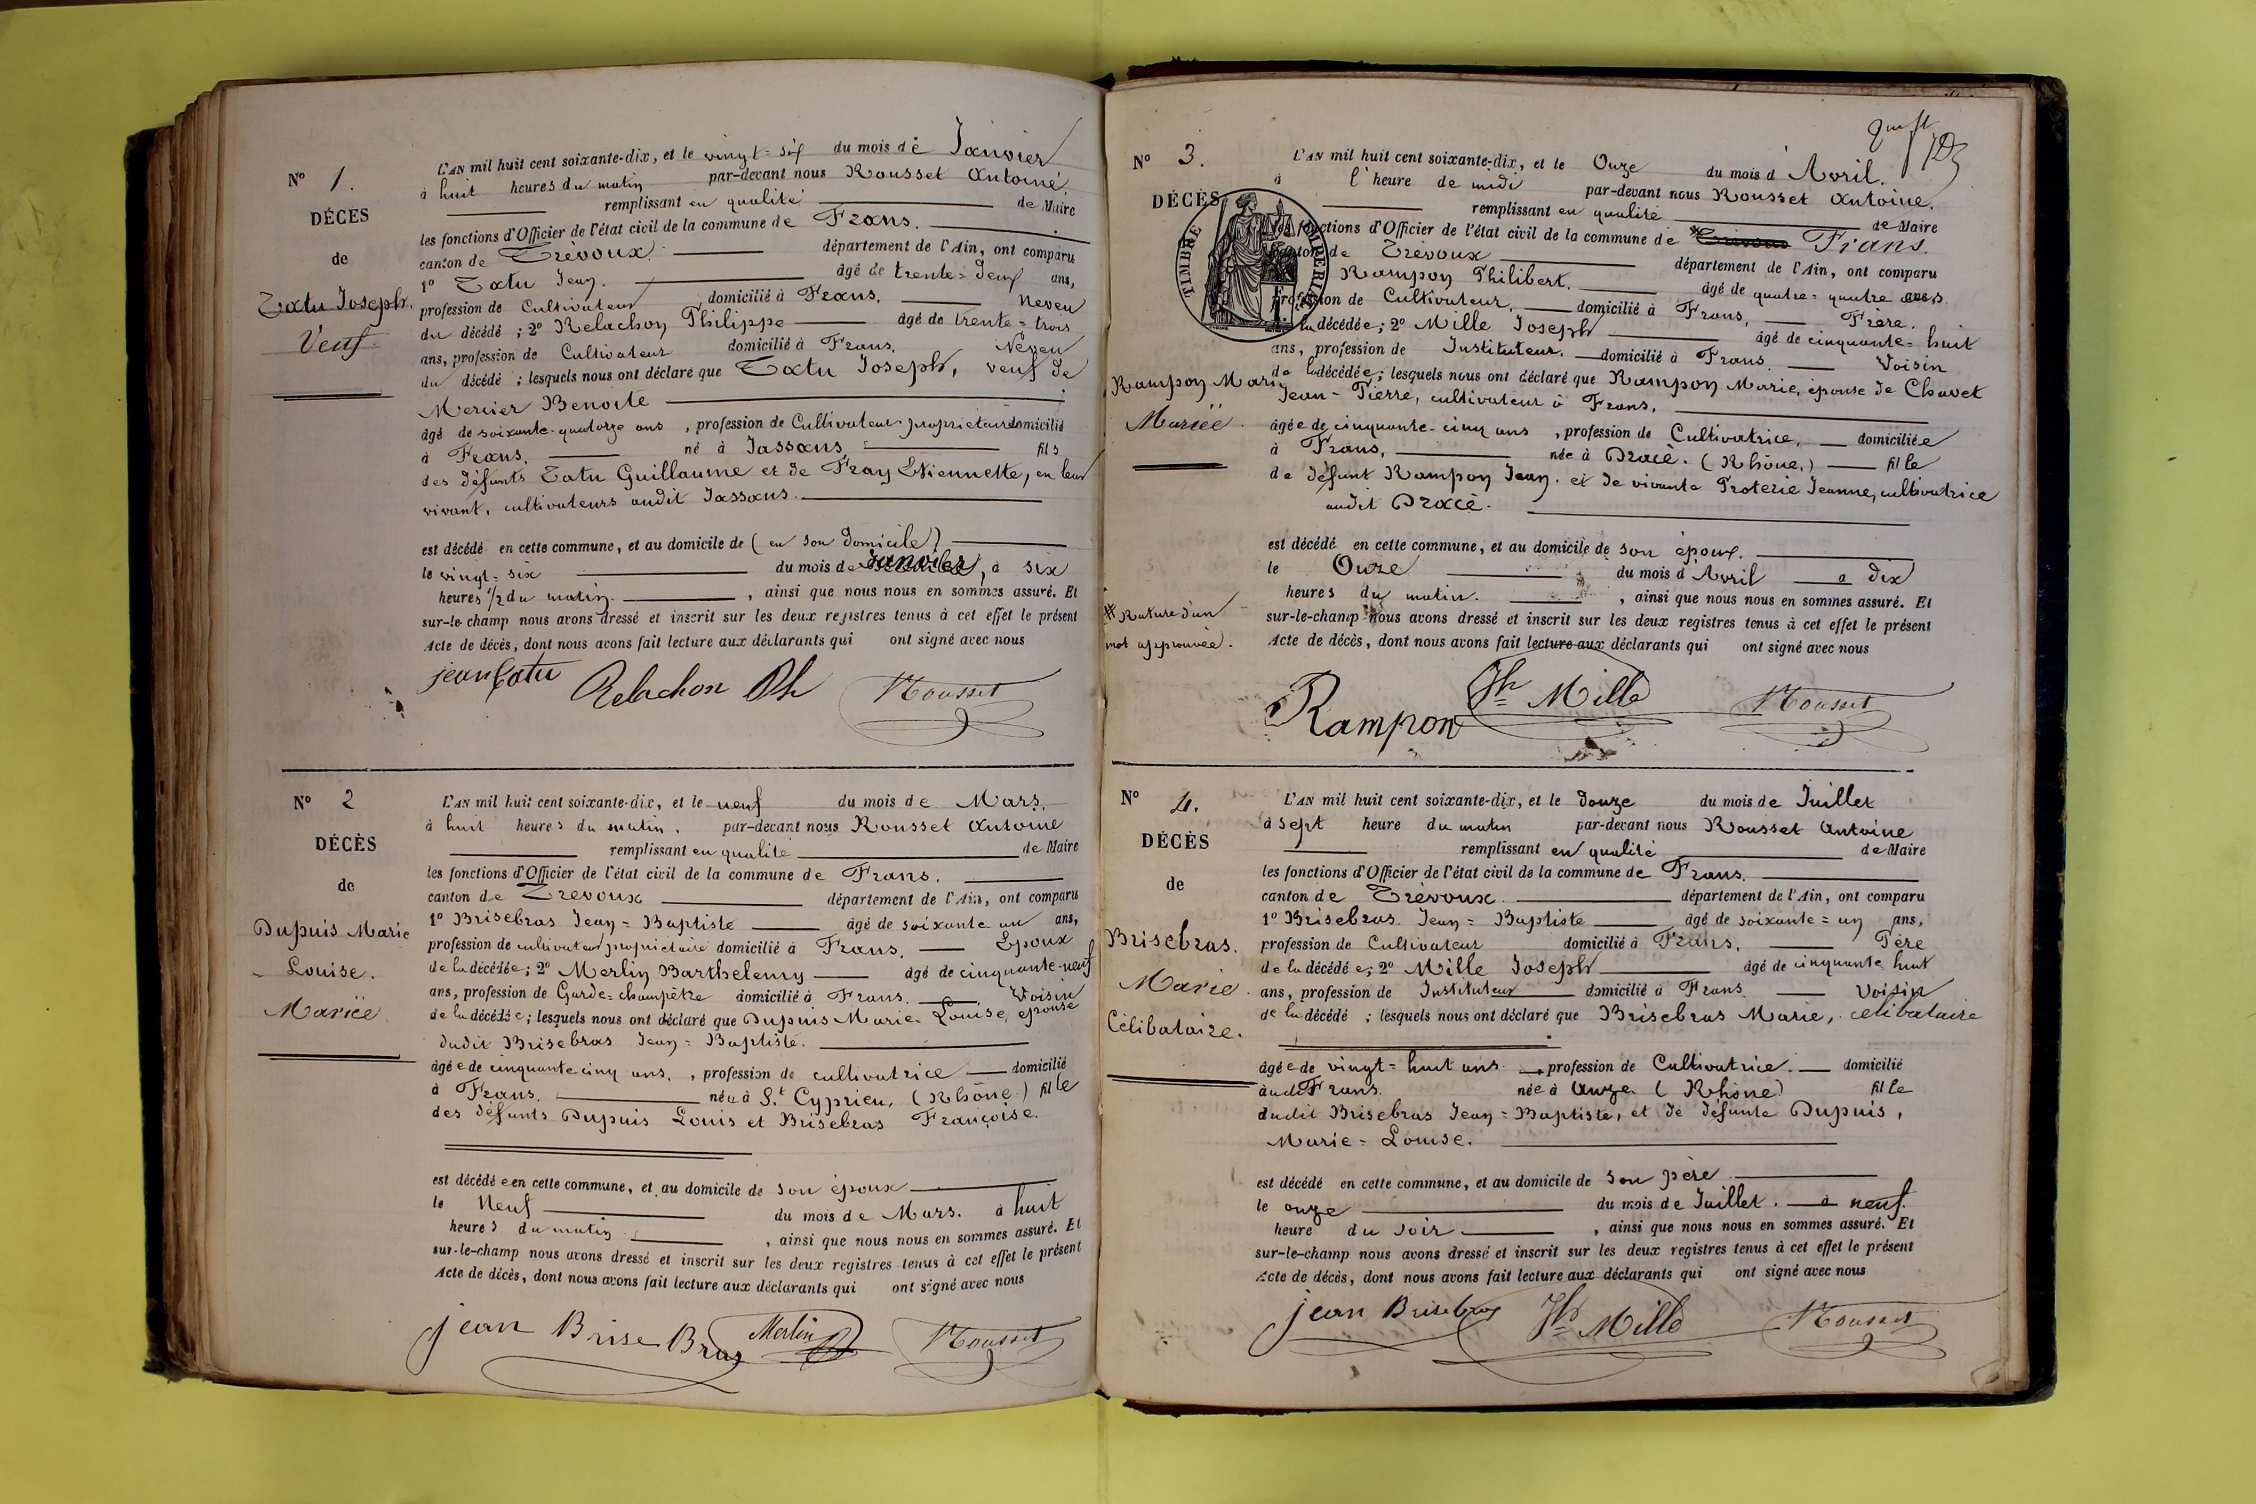 N° 1.
DÉCÈS
de
Tatu Joseph.
Veuf
L'AN mil huit cent soixante-dix, et le vingt-six du mois de Janvier
à huit heures du matin par-devant nous Rousset Antoine.
remplissant en qualité de Maire
les fonctions d'Officier de l'état civil de la commune de Frans.
canton de Trévoux. département de l'Ain, ont comparu
1° Tatu Jean. âgé de trente-deux ans,
profession de Cultivateur domicilié à Frans. Neveu
du décédé ; 2° Relachon Philippe âgé de trente-trois
ans, profession de Cultivateur domicilié à Frans. Neveu
du décédé ; lesquels nous ont déclaré que Tatu Joseph, veuf de
Mercier Benoite
âgé de soixante-quatorze ans , profession de Cultivateur propriétaire domicilié
à Frans. né à Jassans, fils
des défunts Tatu Guillaume et de Fray Etiennette, en leur
vivant, cultivateurs audit Jassans.
est décédé en cette commune, et au domicile de (en son domicile)
le vingt-six du mois de Janvier, à six
heures 1/2 du matin. , ainsi que nous nous en sommes assuré. Et
sur-le-champ nous avons dressé et inscrit sur les deux registres tenus à cet effet le présent
Acte de décès, dont nous avons fait lecture aux déclarants qui ont signé avec nous
jean tatu Relachon Ph Rousset
N° 2
DÉCÈS
de
Dupuis Marie
Louise.
Mariée
L'AN mil huit cent soixante-dix, et le neuf du mois de Mars.
à huit heures du matin. par-devant nous Rousset Antoine
remplissant en qualité de Maire
les fonctions d'Officier de l'état civil de la commune de Frans.
canton de Trévoux département de l'Ain, ont comparu
1° Brisebras Jean-Baptiste âgé de soixante un ans,
profession de cultivateur propriétaire domicilié à Frans. Epoux
de la décédée ; 2° Merlin Barthelemy âgé de cinquante-neuf
ans, profession de Garde-champêtre domicilié à Frans. Voisin
de la décédée ; lesquels nous ont déclaré que Dupuis Marie-Louise, épouse
dudit Brisebras Jean-Baptiste.
âgée de cinquante cinq ans. , profession de cultivatrice domicilié
à Frans. née à St Cyprien, (Rhône) fille
des défunts Dupuis Louis et Brisebras Françoise.
est décédée en cette commune, et au domicile de son époux
le Neuf du mois de Mars. à huit
heures du matin , ainsi que nous nous en sommes assuré. Et
sur-le-champ nous avons dressé et inscrit sur les deux registres tenus à cet effet le présent
Acte de décès, dont nous avons fait lecture aux déclarants qui ont signé avec nous
jean Brise Bras Merlin Rousset
N° 3.
DÉCÈS
TIMBRE IMPERIAL
Rampon Marie
Mariée.
# Rature d'un
mot approuvée.
L'AN mil huit cent soixante-dix, et le Onze du mois d'Avril.
à l'heure de midi par-devant nous Rousset Antoine.
remplissant en qualité de Maire
les fonctions d'Officier de l'état civil de la commune de # Trévoux Frans.
canton de Trévoux département de l'Ain, ont comparu
Rampon Philibert. âgé de quatre-quatre ans
profession de Cultivateur. domicilié à Frans. Frère.
de la décédée ; 2° Mille Joseph âgé de cinquante-huit
ans, profession de Instituteur. domicilié à Frans. Voisin
de la décédée ; lesquels nous ont déclaré que Rampon Marie, épouse de Chavet
Jean-Pierre, cultivateur à Frans.
âgée de cinquante-cinq ans , profession de Cultivatrice. domiciliée
à Frans. née à Dracé. (Rhône.) fille
de défunt Rampon Jean. et de vivante Proterie Jeanne, cultivatrice
audit Dracé.
est décédé en cette commune, et au domicile de son époux.
le Onze du mois d'Avril à dix
heures du matin. , ainsi que nous nous en sommes assuré. Et
sur-le-champ nous avons dressé et inscrit sur les deux registres tenus à cet effet le présent
Acte de décès, dont nous avons fait lecture aux déclarants qui ont signé avec nous
Rampon Jh Mille Rousset
N° 4.
DÉCÈS
de
Brisebras.
Marie.
Célibataire.
L'AN mil huit cent soixante-dix, et le douze du mois de Juillet
à sept heure du matin par-devant nous Rousset Antoine
remplissant en qualité de Maire
les fonctions d'Officier de l'état civil de la commune de Frans.
canton de Trévoux. département de l'Ain, ont comparu
1° Brisebras Jean-Baptiste âgé de soixante-un ans,
profession de Cultivateur domicilié à Frans. Père
de la décédée ; 2° Mille Joseph âgé de cinquante huit
ans, profession de Instituteur domicilié à Frans. Voisin
de la décédé ; lesquels nous ont déclaré que Brisebras Marie, célibataire
âgée de vingt-huit ans. , profession de Cultivatrice. domicilié
audit Frans. née à Anze (Rhône) fille
dudit Brisebras Jean-Baptiste, et de défunte Dupuis,
Marie-Louise.
est décédé en cette commune, et au domicile de son père
le onze du mois de Juillet. à neuf.
heure du soir , ainsi que nous nous en sommes assuré. Et
sur-le-champ nous avons dressé et inscrit sur les deux registres tenus à cet effet le présent
Acte de décès, dont nous avons fait lecture aux déclarants qui ont signé avec nous
jean Brisebras Jh Mille Rousset